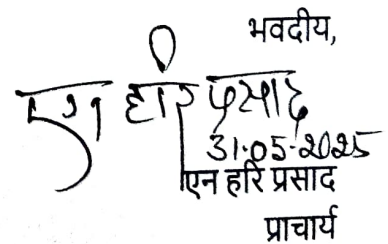 भवदीय,
एन हरि प्रसाद
31.05.2025
एन हरि प्रसाद
प्राचार्य